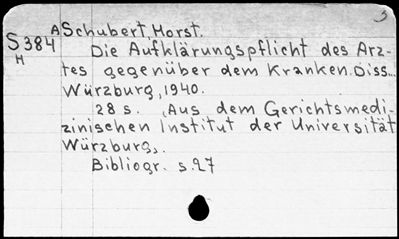 3
A Schubert, Horst.
S384
H
Die Aufklärungspflicht des Arz-
tes gegenüber dem Kranken. Diss..
Würzburg, 1940.
28 s. "Aus dem Gerichtsmedi-
zinischen Institut der Universität
Würzburg".
Bibliogr. s.27